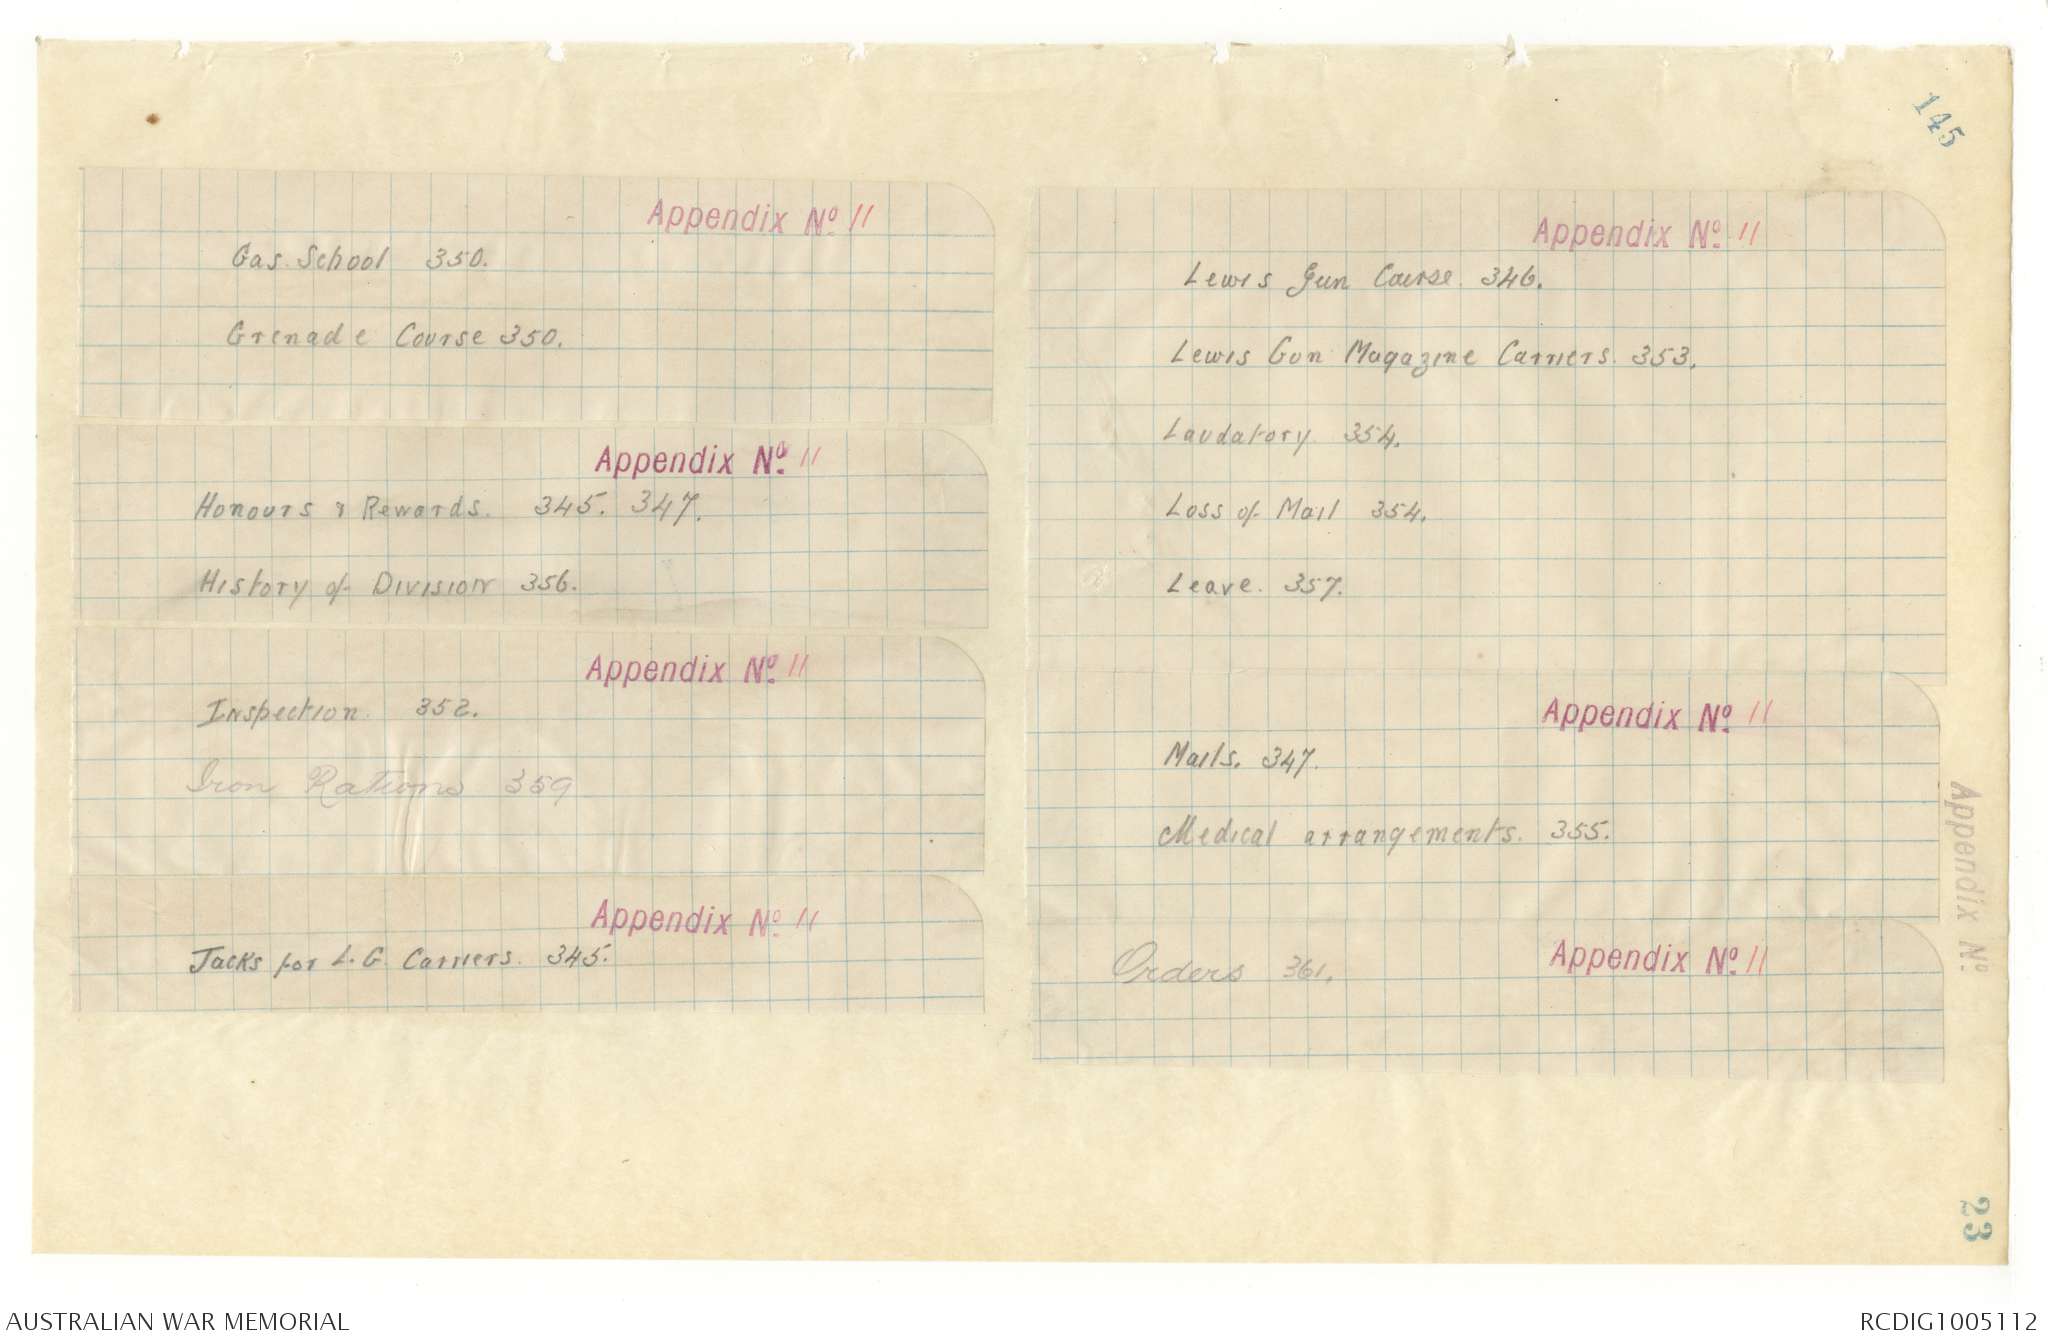 145
Appendix Nº 11
Gas School 350.
Grenade Course 350.
Appendix Nº 11
Honours & Rewards. 345. 347.
History of Division 356.
Appendix Nº 11
Inspection. 352.
Iron Rations 359
Appendix Nº 11
Jacks for L.G. Carriers. 345.
Appendix Nº 11
Lewis Gun Course. 346.
Lewis Gun Magazine Carriers. 353.
Laudatory. 354.
Loss of Mail 354.
Leave. 357.
Appendix Nº 11
Mails. 347.
Medical arrangements. 355.
Appendix Nº 11
Orders 361.
Appendix Nº
23
AUSTRALIAN WAR MEMORIAL
RCDIG1005112